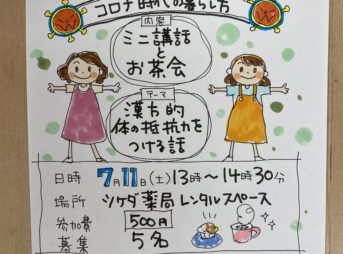 コロナ時代の暮らし方
内容
ミニ講話
と
お茶会
テーマ
漢方的
体の抵抗力を
つける話
日時 7月11日(土)13時〜14時30分
場所 シケダ薬局 レンタルスペース
参加費 500円
募集 5名